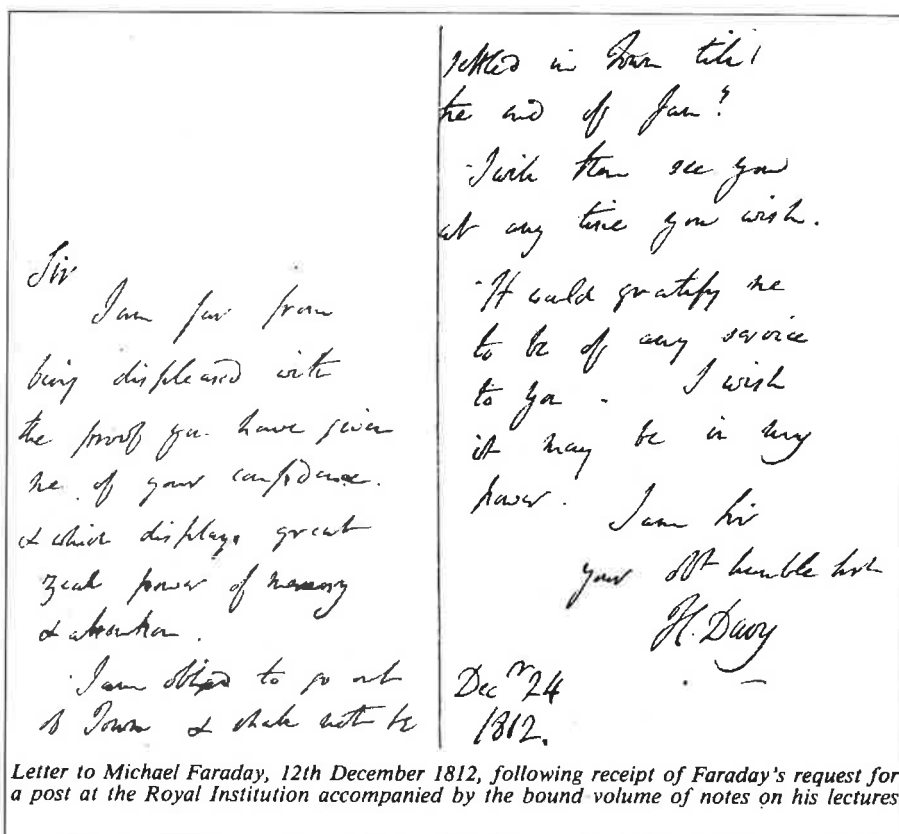 Sir
I am far from
being displeased with
the proof you have given
me of your confidence.
& which displays great
zeal power of memory
& attention.
I am obliged to go out
of Town & shall not be
settled in Town till
the end of Jan.y
I will then see you
at any time you wish.
It would gratify me
to be of any service
to you. I wish
it may be in my
power. I am Sir
your obt humble
H. Davy
Decr 24
1812.
Letter to Michael Faraday, 12th December 1812, following receipt of Faraday's request for
a post at the Royal Institution accompanied by the bound volume of notes on his lectures